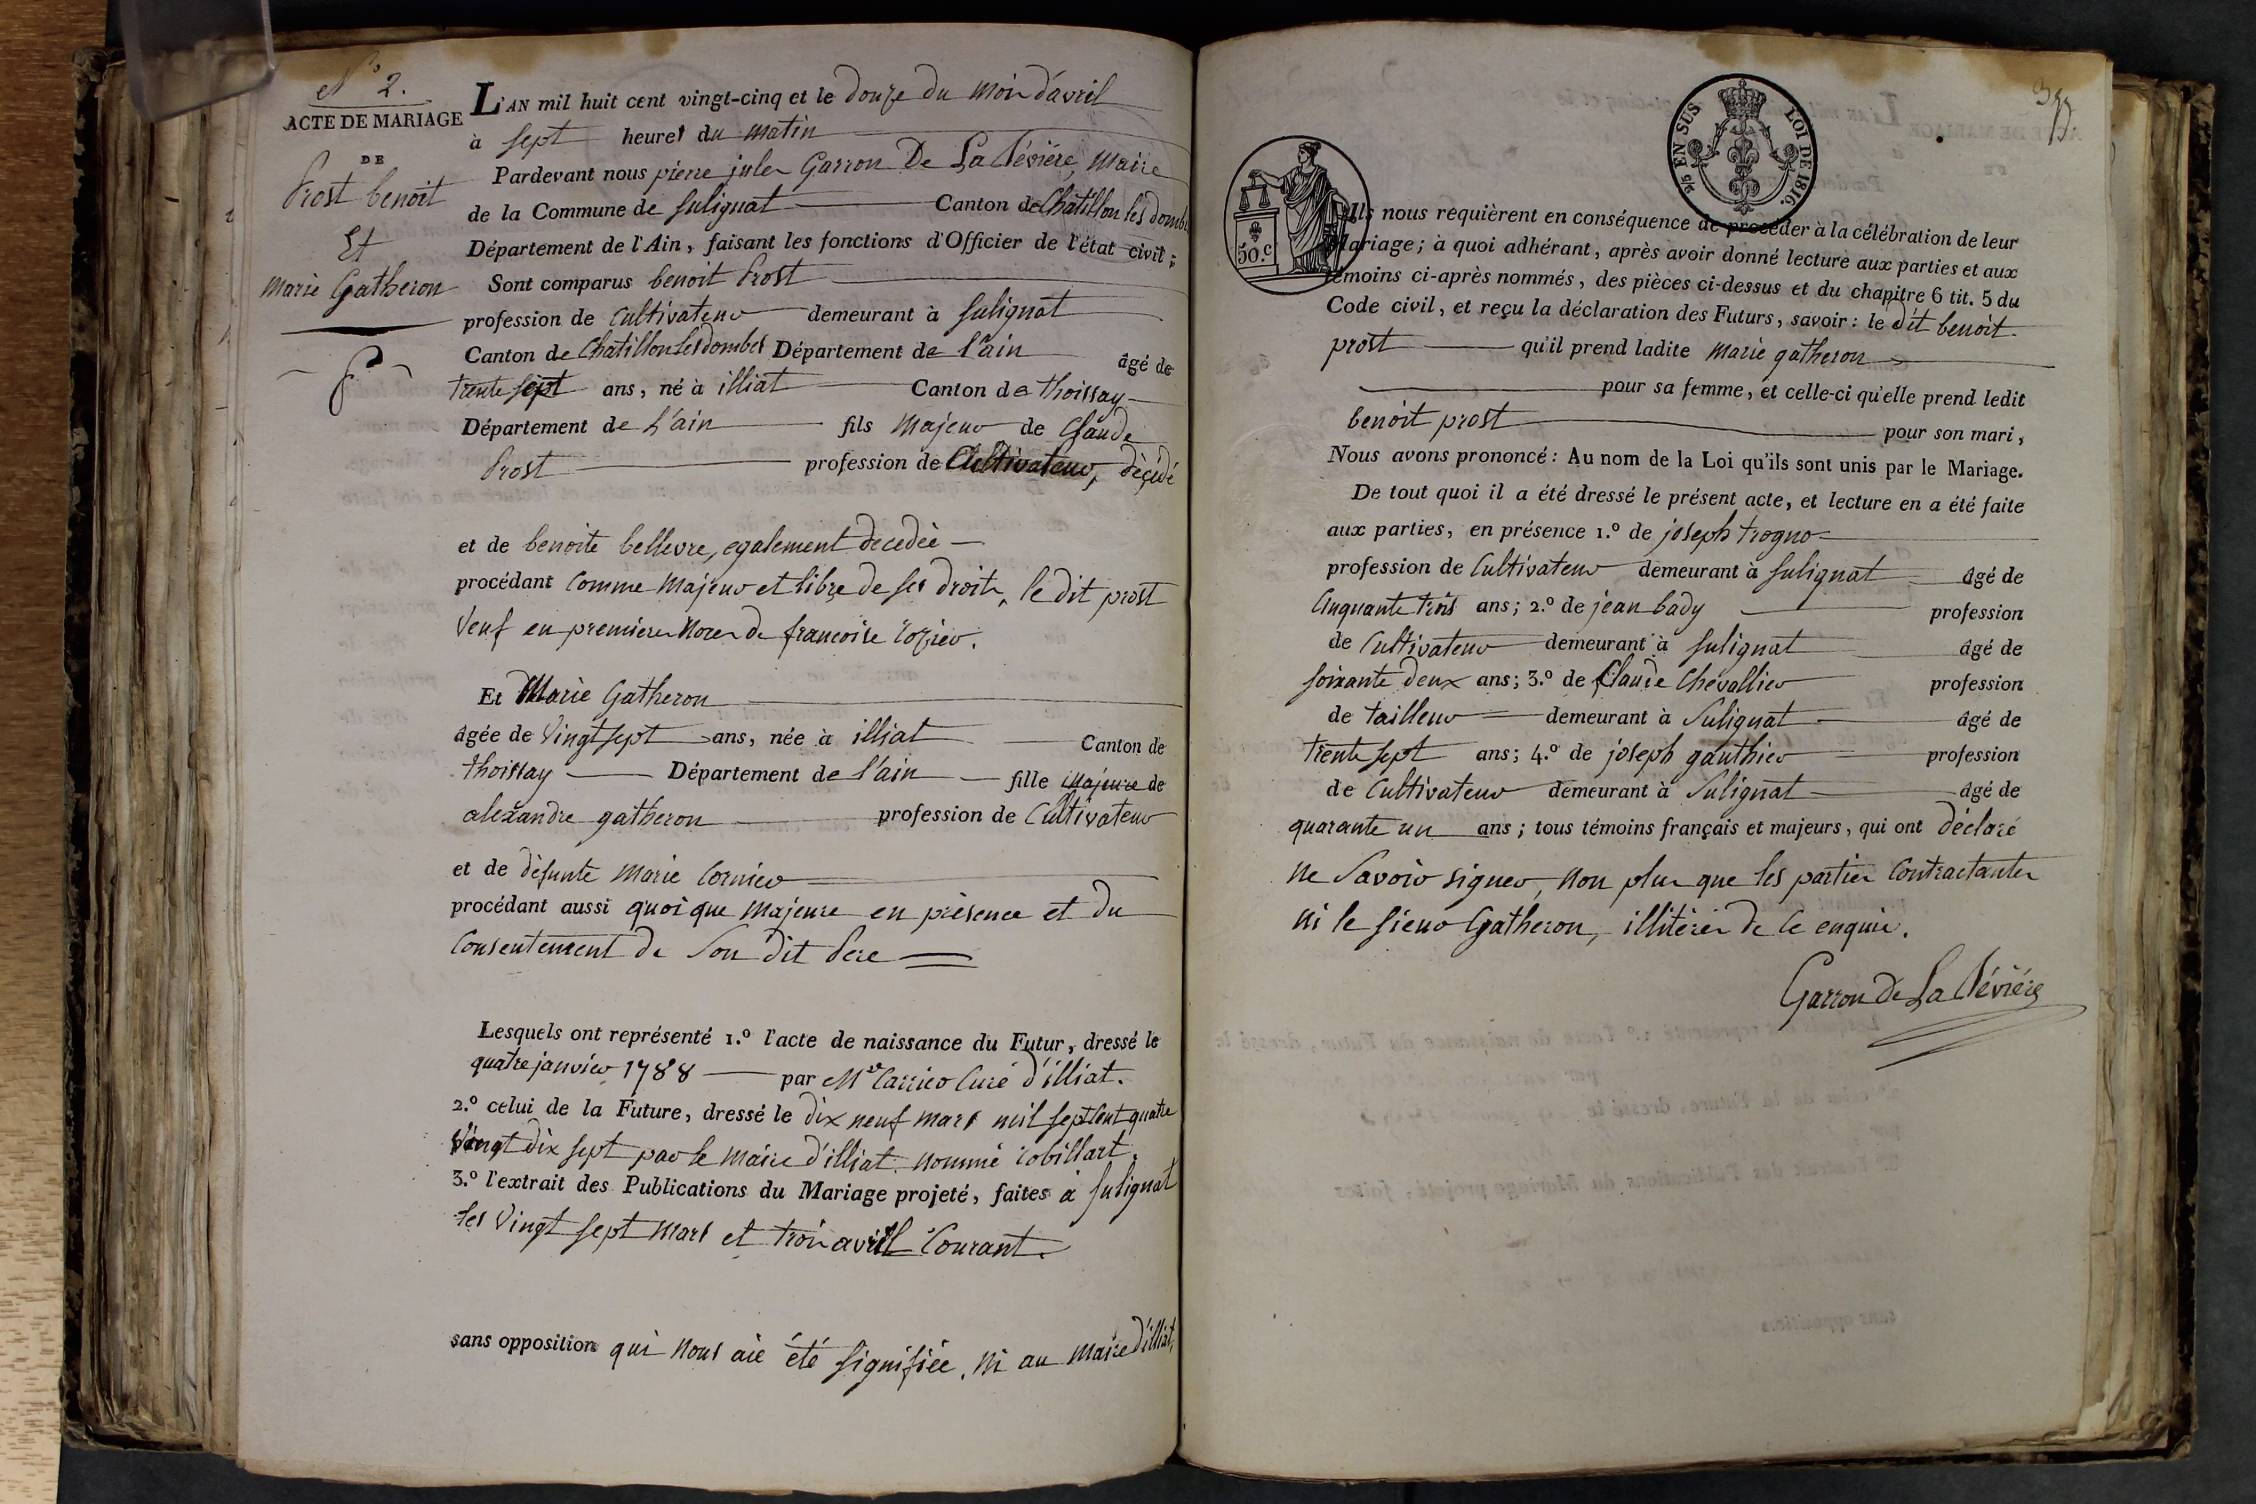 N° 2.
ACTE DE MARIAGE
DE
Prost benoit
Et
Marie Gatheron
L'AN mil huit cent vingt-cinq et le douze du mois d'avril
à sept heures du matin
Pardevant nous pierre jules Garron De La Bévière, Maire
de la Commune de Sulignat Canton de Chatillon les dombes
Département de l'Ain, faisant les fonctions d'Officier de l'état civil;
Sont comparus benoit Prost
profession de Cultivateur demeurant à Sulignat
Canton de Chatillon les dombes Département de l'ain âgé de
trente sept ans, né à illiat Canton de thoissay
Département de L'ain fils Majeur de Claude
Prost profession de Cultivateur, décédé
et de benoite bellevre, egalement decedée
procédant comme Majeur et libre de ses droits, le dit prost
Veuf en premieres Noces de francoise
Et Marie Gatheron
âgée de Vingt sept ans, née à illiat Canton de
thoissay Département de l'ain fille Majeure de
alexandre gatheron profession de Cultivateur
et de défunte Marie Cornier
procédant aussi quoique Majeure en présence et du
Consentement de Son dit Pere
Lesquels ont représenté 1.º l'acte de naissance du Futur, dressé le
quatre janvier 1788 par Mr Carrier Curé d'illiat.
2.º celui de la Future, dressé le dix neuf mars mil sept Cent quatre
Vingt dix sept par le Maire d'illiat nommé robillart.
3.º l'extrait des Publications du Mariage projeté, faites à Sulignat
les Vingt sept Mars et trois avril Courant.
sans opposition qui Nous aie été signifiée, Ni au Maire d'illiat,
50.c
95 EN SUS LOI DE 1816.
Ils nous requièrent en conséquence de procéder à la célébration de leur
Mariage; à quoi adhérant, après avoir donné lecture aux parties et aux
témoins ci-après nommés, des pièces ci-dessus et du chapitre 6 tit. 5 du
Code civil, et reçu la déclaration des Futurs, savoir: le dit benoit
prost qu'il prend ladite Marie gatheron
pour sa femme, et celle-ci qu'elle prend ledit
benoit prost pour son mari,
Nous avons prononcé: Au nom de la Loi qu'ils sont unis par le Mariage.
De tout quoi il a été dressé le présent acte, et lecture en a été faite
aux parties, en présence 1.º de joseph trogno
profession de Cultivateur demeurant à Sulignat âgé de
Cinquante trois ans; 2.º de jean bady profession
de Cultivateur demeurant à Sulignat âgé de
soixante deux ans; 3.º de Claude Chevallier profession
de tailleur demeurant à Sulignat âgé de
trente sept ans; 4.º de joseph gauthier profession
de Cultivateur demeurant à Sulignat âgé de
quarante un ans; tous témoins français et majeurs, qui ont déclaré
Ne Savoir signer, Non plus que les parties Contractantes
Ni le sieur Gatheron, illitérés de ce enquis.
Garron de La Bévière